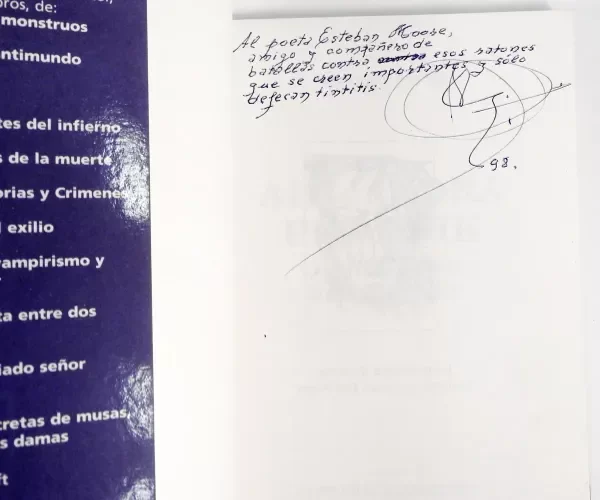 ros, de:
monstruos
ntimundo
tes del infierno
s de la muerte
rias y Crimenes
exilio
ampirismo y
ta entre dos
iado señor
cretas de musas,
s damas
ft
Al poeta Esteban Moore,
amigo y compañero de
batallas contra esos ratones
que se creen importantes y sólo
defecan tintitis.
98.